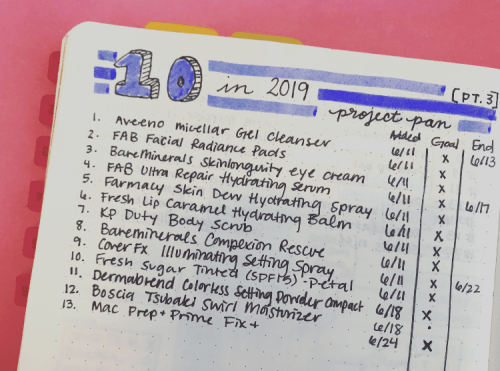 10 in 2019 [PT. 3]
project pan
Added Goal End
1. Aveeno micellar Gel Cleanser 6/11 x 6/13
2. FAB Facial Radiance Pads 6/11 x
3. BareMinerals Skinlonguity eye cream 6/11 x
4. FAB Ultra Repair Hydrating Serum 6/11 x 6/17
5. Farmacy Skin Dew Hydrating Spray 6/11 x
6. Fresh Lip Caramel Hydrating Balm 6/11 x
7. KP Duty Body Scrub 6/11 x
8. Bareminerals Complexion Rescue 6/11 x
9. CoverFx Illuminating Setting Spray 6/11 x 6/22
10. Fresh Sugar Tinted (SPF15) - Petal 6/11 x
11. Dermablend Colorless Setting Powder Compact 6/18 x
12. Boscia Tsubaki Swirl Moisturizer 6/18 .
13. Mac Prep + Prime Fix + 6/24 x